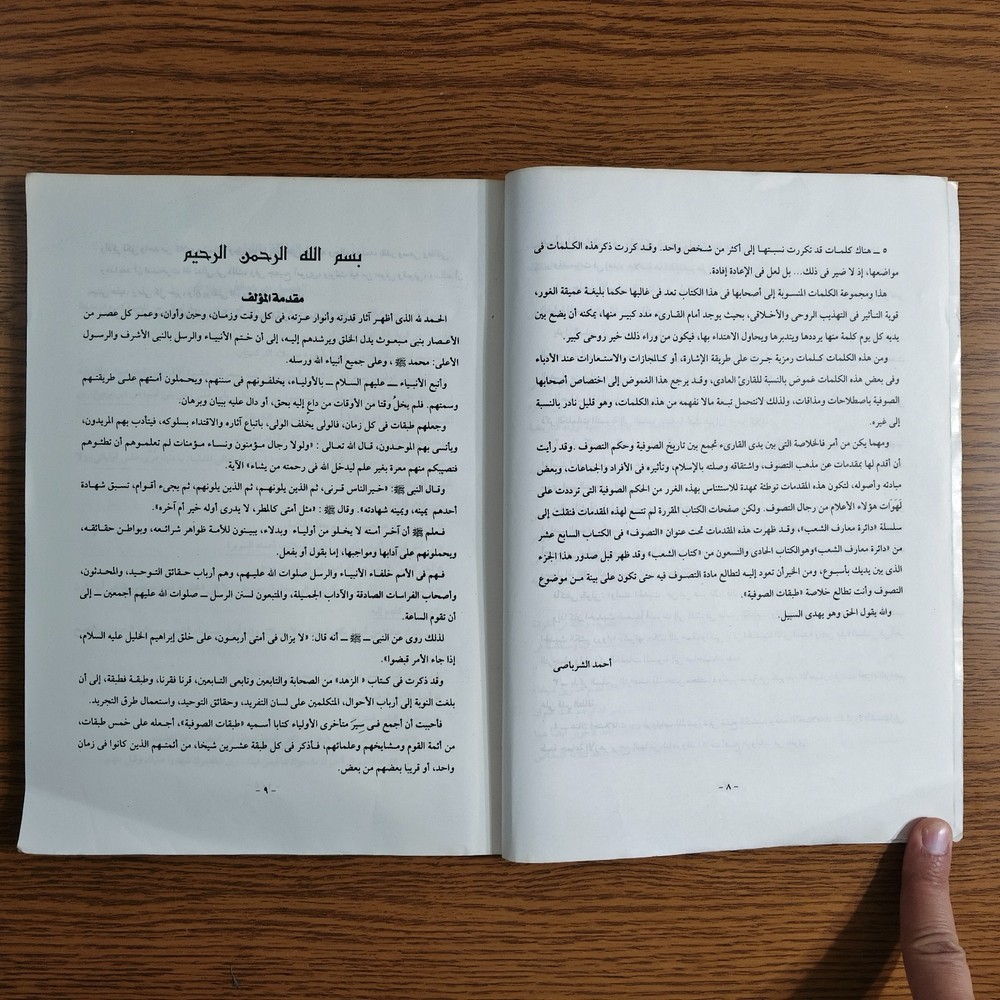 ٥ ــ هناك كلمات قد تكررت نسبتها إلى أكثر من شخص واحد. وقد كررت ذكر هذه الكلمات فى
مواضعها، إذ لا ضير فى ذلك... بل لعل فى الإعادة إفادة.
هذا ومجموعة الكلمات المنسوبة إلى أصحابها فى هذا الكتاب تعد فى غالبها حكما بليغة عميقة الغور،
قوية التأثير فى التهذيب الروحى والأخلاقى، بحيث يوجد أمام القارىء مدد كبير منها، يمكنه أن يضع بين
يديه كل يوم كلمة منها يرددها ويتدبرها ويحاول الاهتداء بها، فيكون من وراء ذلك خير روحى كبير.
ومن هذه الكلمات كلمات رمزية جرت على طريقة الإشارة، أو كالمجازات والاستعارات عند الأدباء
وفى بعض هذه الكلمات غموض بالنسبة للقارئ العادى، وقد يرجع هذا الغموض إلى اختصاص أصحابها
الصوفية باصطلاحات ومذاقات، ولذلك لانتحمل تبعة مالا نفهمه من هذه الكلمات، وهو قليل نادر بالنسبة
إلى غيره.
ومهما يكن من أمر فالخلاصة التى بين يدى القارىء تجمع بين تاريخ الصوفية وحكم التصوف. وقد رأيت
أن أقدم لها بمقدمات عن مذهب التصوف، واشتقاقه وصلته بالإسلام، وتأثيره فى الأفراد والجماعات، وبعض
مبادئه وأصوله، لتكون هذه المقدمات توطئة ممهدة للاستئناس بهذه الغرر من الحكم الصوفية التى ترددت على
لَهَوَات هؤلاء الأعلام من رجال التصوف. ولكن صفحات الكتاب المقررة لم تتسع لهذه المقدمات فنقلت إلى
سلسلة «دائرة معارف الشعب»، وقد ظهرت هذه المقدمات تحت عنوان «التصوف» فى الكتاب السابع عشر
من «دائرة معارف الشعب» وهو الكتاب الحادى والتسعون من «كتاب الشعب» وقد ظهر قبل صدور هذا الجزء
الذى بين يديك بأسبوع، ومن الخير أن تعود إليه لتطالع مادة التصوف فيه حتى تكون على بينة من موضوع
التصوف وأنت تطالع خلاصة «طبقات الصوفية».
والله يقول الحق وهو يهدى السبيل.
أحمد الشرباصى
- ٨ -
بسم الله الرحمن الرحيم
مقدمة المؤلف
الحمد لله الذى أظهر آثار قدرته وأنوار عزته، فى كل وقت وزمان، وحين وأوان، وعمر كل عصر من
الأعصار بنبى مبعوث يدل الخلق ويرشدهم إليه، إلى أن ختم الأنبياء والرسل بالنبى الأشرف والرسول
الأعلى: محمد ﷺ، وعلى جميع أنبياء الله ورسله.
وأتبع الأنبياء ــ عليهم السلام ــ بالأولياء، يخلفونهم فى سننهم، ويحملون أمتهم على طريقتهم
وسمتهم. فلم يخلُ وقتا من الأوقات من داعٍ إليه بحق، أو دال عليه ببيان وبرهان.
وجعلهم طبقات فى كل زمان، فالولى يخلف الولى، باتباع آثاره والاقتداء بسلوكه، فيتأدب بهم المريدون،
ويأتسى بهم الموحدون، قال الله تعالى: «ولولا رجال مؤمنون ونساء مؤمنات لم تعلموهم أن تطئوهم
فتصيبكم منهم معرة بغير علم ليدخل الله فى رحمته من يشاء» الآية.
وقال النبى ﷺ: «خير الناس قرنى، ثم الذين يلونهم، ثم الذين يلونهم، ثم يجىء أقوام، تسبق شهادة
أحدهم يمينه، ويمينه شهادته». وقال ﷺ: «مثل أمتى كالمطر، لا يدرى أوله خير أم آخره».
فعلم ﷺ أن آخر أمته لا يخلو من أولياء وبدلاء، يبينون للأمة ظواهر شرائعه، وبواطن حقائقه،
ويحملونهم على آدابها ومواجبها، إما بقول أو بفعل.
فهم فى الأمم خلفاء الأنبياء والرسل صلوات الله عليهم، وهم أرباب حقائق التوحيد، والمحدثون،
وأصحاب الفراسات الصادقة والآداب الجميلة، والمتبعون لسنن الرسل ــ صلوات الله عليهم أجمعين ــ إلى
أن تقوم الساعة.
لذلك روى عن النبى ــ ﷺ ــ أنه قال: «لا يزال فى أمتى أربعون، على خلق إبراهيم الخليل عليه السلام،
إذا جاء الأمر قبضوا».
وقد ذكرت فى كتاب «الزهد» من الصحابة والتابعين وتابعى التابعين، قرنا فقرنا، وطبقة فطبقة، إلى أن
بلغت النوبة إلى أرباب الأحوال، المتكلمين على لسان التفريد، وحقائق التوحيد، واستعمال طرق التجريد.
فأحببت أن أجمع فى سِيَر متأخرى الأولياء كتابا أسميه «طبقات الصوفية»، أجعله على خمس طبقات،
من أئمة القوم ومشايخهم وعلمائهم، فأذكر فى كل طبقة عشرين شيخا، من أئمتهم الذين كانوا فى زمان
واحد، أو قريبا بعضهم من بعض.
- ٩ -